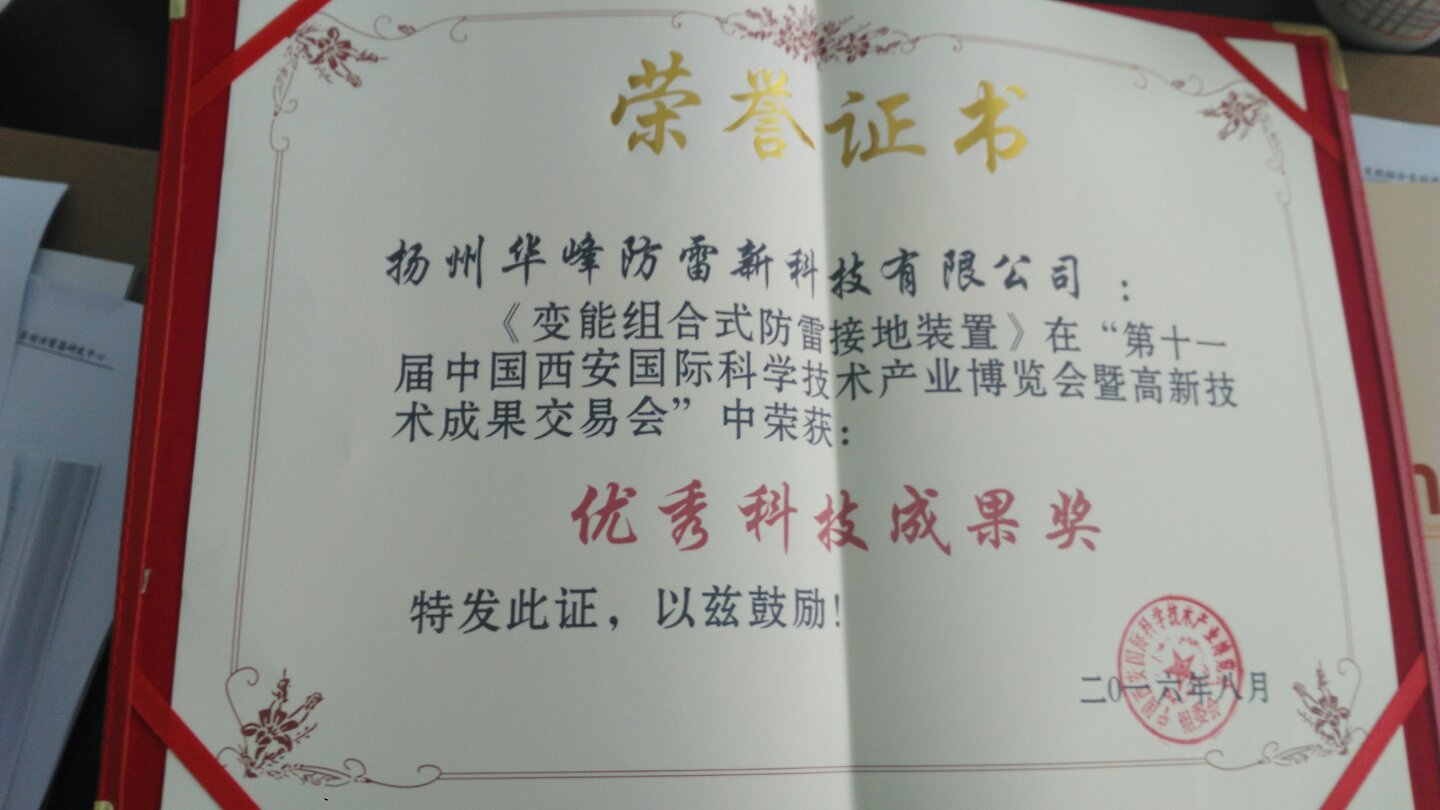 荣誉证书
扬州华峰防雷新科技有限公司：
《变能组合式防雷接地装置》在“第十一
届中国西安国际科学技术产业博览会暨高新技
术成果交易会”中荣获：
优秀科技成果奖
特发此证，以兹鼓励！
中国西安国际科学技术产业博览会
组委会
二〇一六年八月